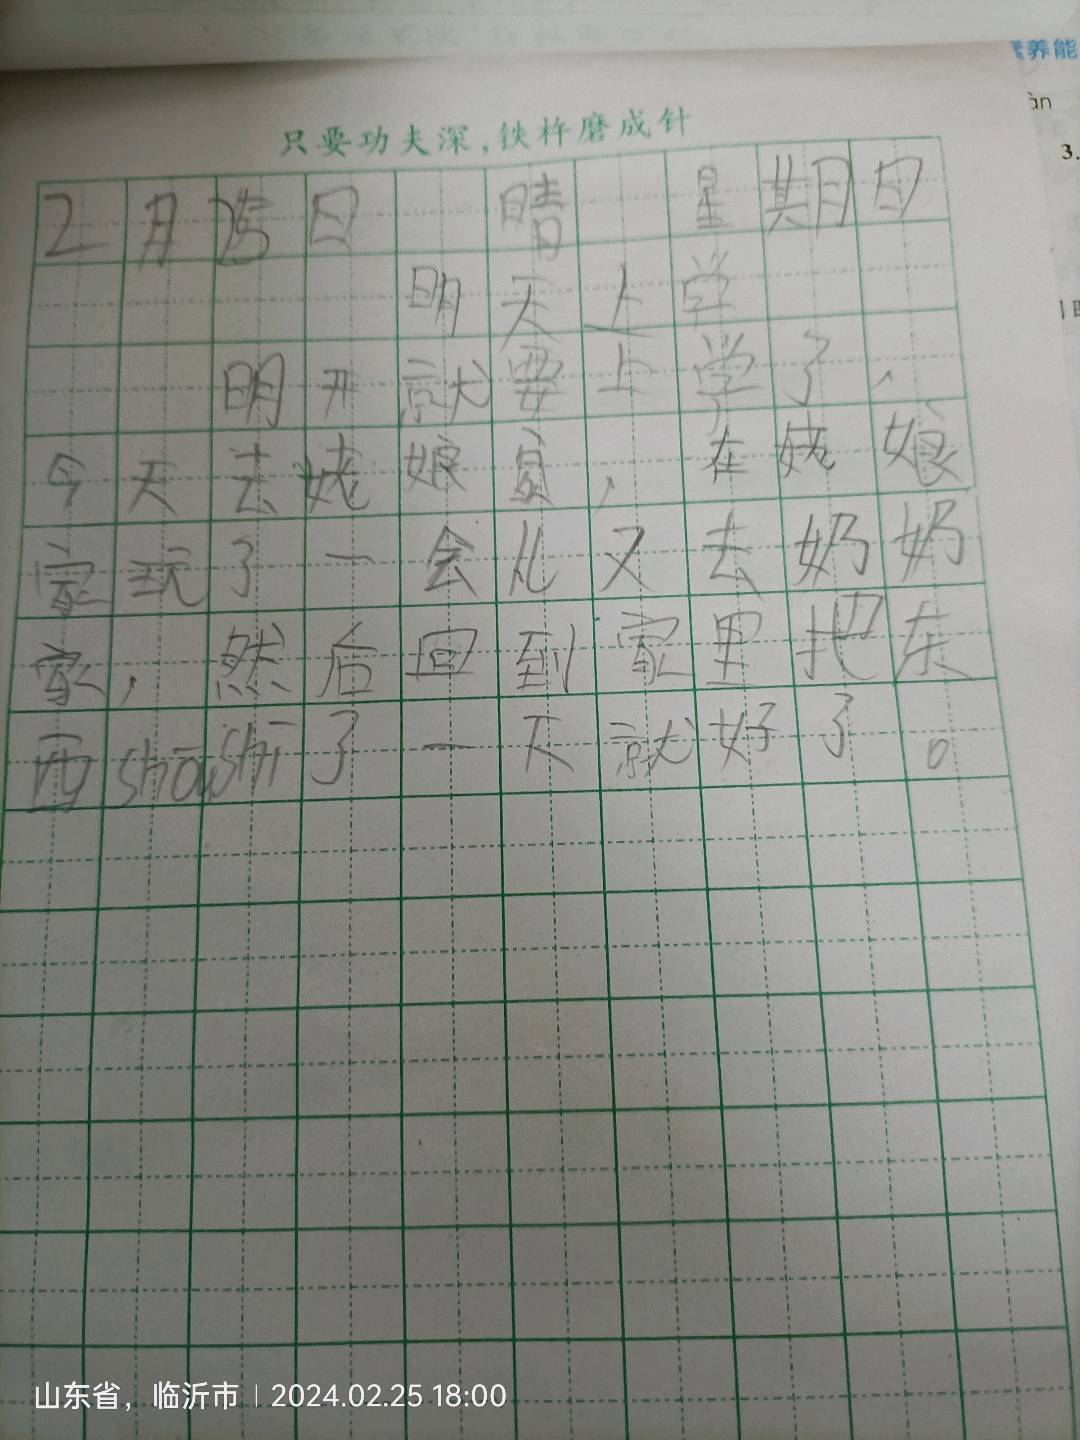 养能
àn
3.
只要功夫深,铁杵磨成针
2月25日 晴 星期日
明天上学
明开就要上学了,
今天去姥娘家,在姥娘
家玩了一会儿又去奶奶
家,然后回到家里把东
西shōushi了一下就好了。
山东省，临沂市 | 2024.02.25 18:00